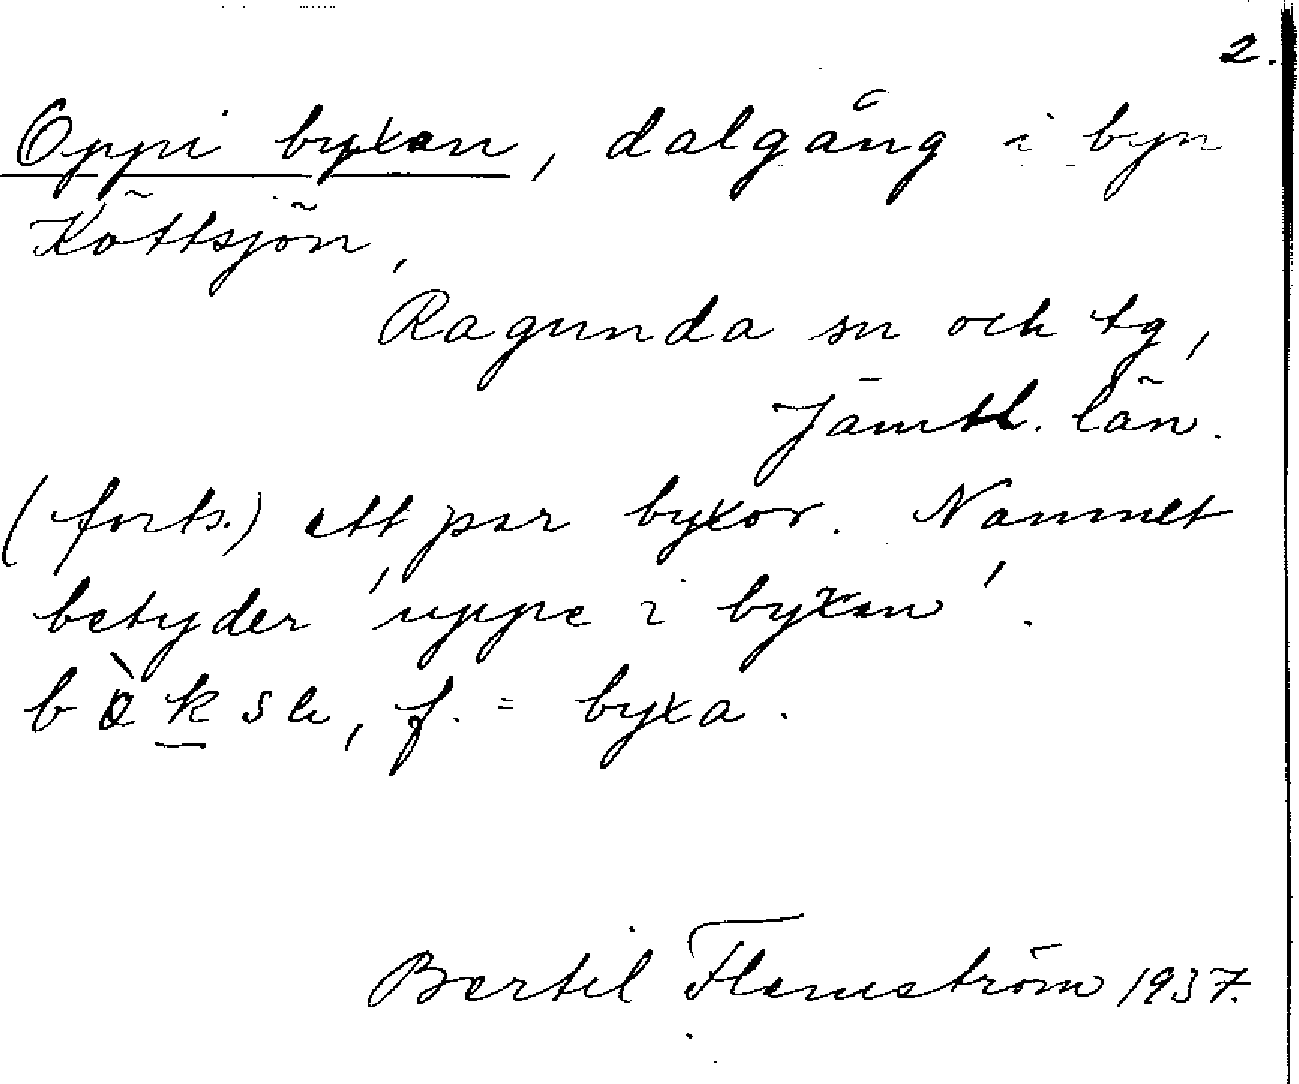 2.
Oppi byxan, dalgång i byn
Köttsjön,
Ragunda sn och tg,
Jämtl. län.
(forts.) ett par byxor. Namnet
betyder 'uppe i byxan'.
f. = byxa.
Bertil Flemström 1937.